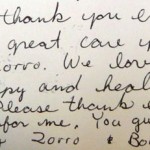 thank you e
great care y
Zorro. We lov
py and heal
Please thank e
for me. You gu
Zorro & Bo